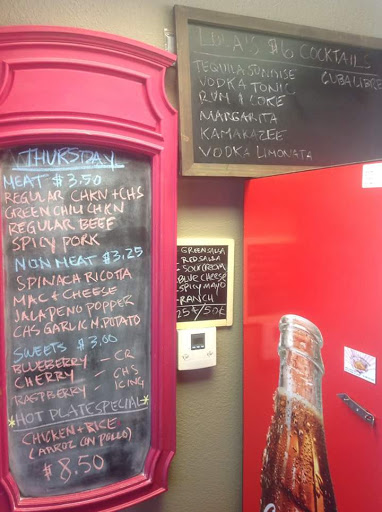 LOLA'S $6 COCKTAILS
TEQUILA SUNRISE CUBA LIBRE
VODKA TONIC
RUM & COKE
MARGARITA
KAMAKAZEE
VODKA LIMONATA
THURSDAY
MEAT $3.50
REGULAR CHKN + CHS
GREEN CHILI CHKN
REGULAR BEEF
SPICY PORK
NON MEAT $3.25
SPINACH RICOTTA
MAC & CHEESE
JALAPENO POPPER
CHS GARLIC M. POTATO
SWEETS $3.00
BLUEBERRY - CR
CHERRY - CHS
RASPBERRY - ICING
*HOT PLATE SPECIAL*
CHICKEN + RICE
(ARROZ CON POLLO)
$8.50
GREEN SALSA
RED SALSA
SOUR CREAM
BLUE CHEESE
SPICY MAYO
RANCH
25¢/50¢